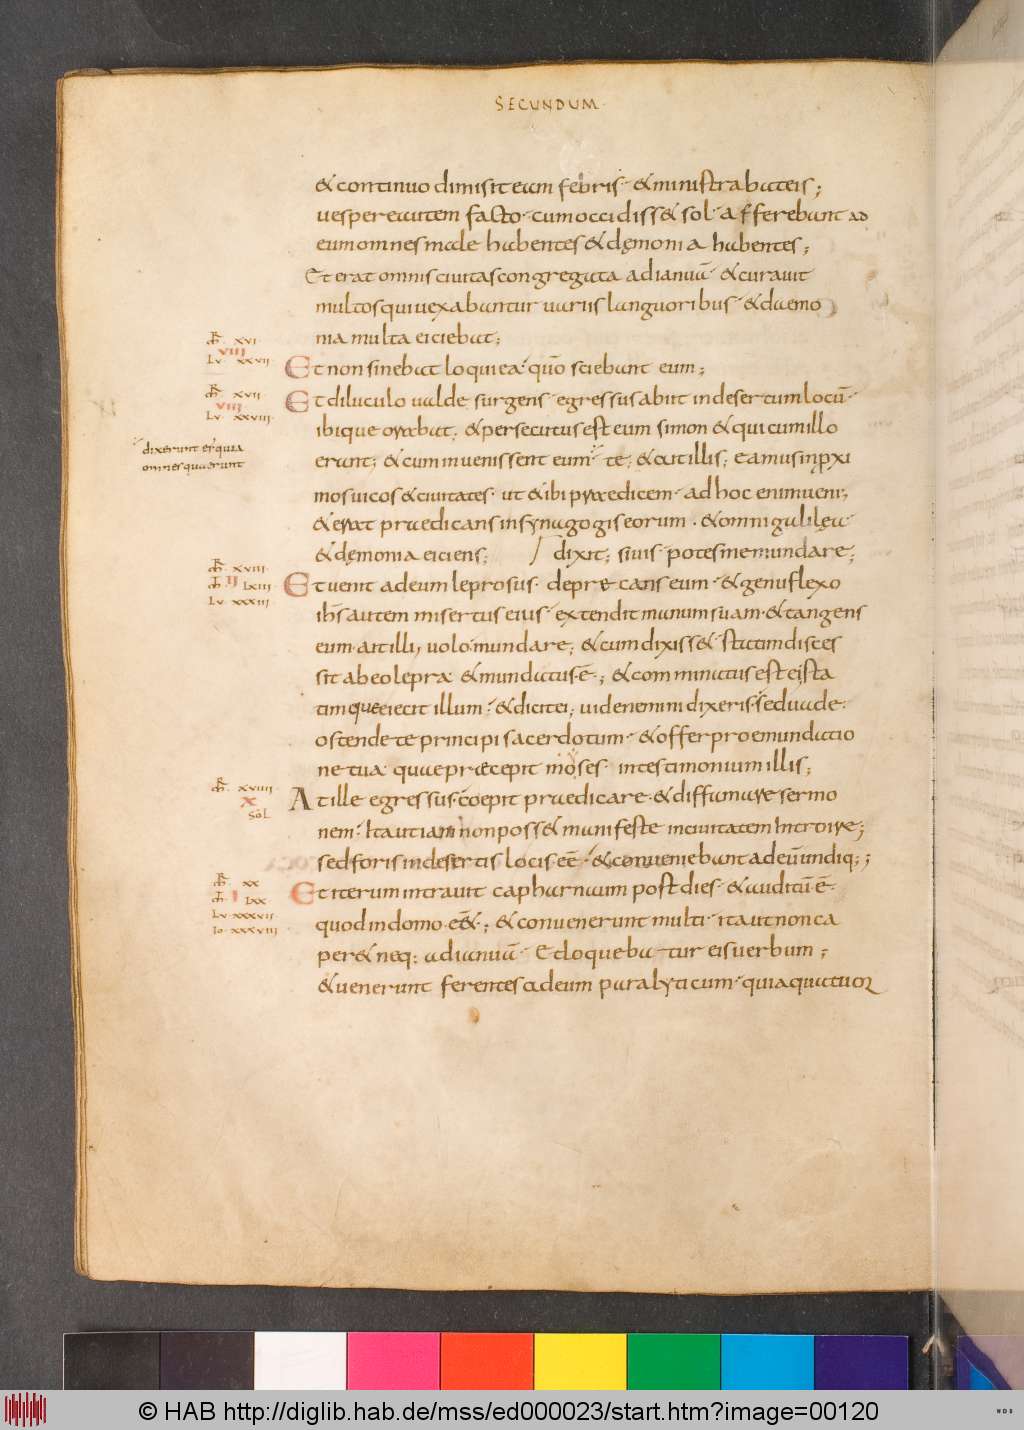 SECUNDUM
& continuo dimisit eam febris & ministrabat eis;
uespere autem facto cum occidiss& sol afferebant ad
eum omnes male habentes & dęmonia habentes;
Et erat omnis ciuitas congregata ad ianuā & curauit
multos qui uexabantur uariis languoribus & daemo
nia multa eiciebat;
M̄R XVI
VIII
LV XXVII
Et non sinebat loqui ea qūo sciebant eum;
M̄R XVII
VIII
LV XXVIII
Et diluculo ualde surgens egressus abiit in desertum locū
ibique orabat, & persecutus est eum simon & qui cum illo
dixerunt ei quia
omnes quaerunt
erant; & cum inuenissent eum te; & ait illis; eamus in pxi
mos uicos & ciuitates ut & ibi praedicem ad hoc enim ueni;
& erat praedicans in synagogis eorum & omni galilęa
& dęmonia eiciens; dixit; si uis potes me mundare;
M̄R XVIII
II LXIII
LV XXXIII
Et uenit ad eum leprosus deprecans eum & genu flexo
ihs autem misertus eius extendit manum suam & tangens
eum ait illi, uolo mundare; & cum dixiss& statim disces
sit ab eo lepra & mundatus ē; & comminatus est ei sta
timque eiecit illum & dicit ei; uide nemini dixeris sed uade
ostende te principi sacerdotum & offer pro emundatio
ne tua quae præcepit moses in testimonium illis;
M̄R XVIIII
X
SOL
At ille egressus coepit praedicare & diffamare sermo
nem ita ut iam non poss& manifeste in ciuitatem introire;
sed foris in desertis locis eē & conueniebant ad eū undiq;;
M̄R XX
I LXX
LV XXXVII
IO XXXVIII
Et iterum intrauit capharnaum post dies & auditū ē
quod in domo eē&; & conuenerunt multi ita ut non ca
per& neq; ad ianuā Et loquebatur eis uerbum;
& uenerunt ferentes ad eum paralyticum qui a quatuor
© HAB http://diglib.hab.de/mss/ed000023/start.htm?image=00120